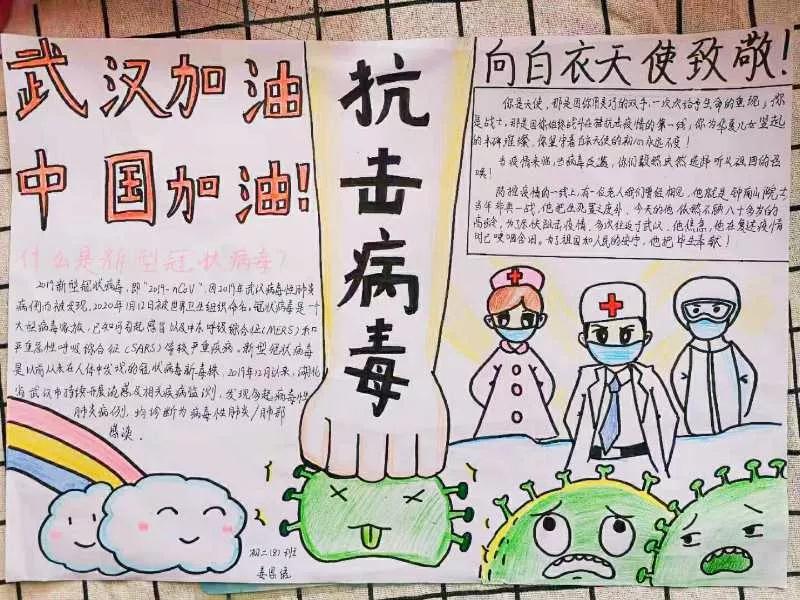 武汉加油
中国加油!
什么是新型冠状病毒?
2019新型冠状病毒,即"2019-nCoV",因2019年武汉病毒性肺炎
病例而被发现,2020年1月12日被世界卫生组织命名,冠状病毒是一个
大型病毒家族,已知可引起感冒以及中东呼吸综合征(MERS)和
严重急性呼吸综合征(SARS)等较严重疾病。新型冠状病毒
是以前从未在人体中发现的冠状病毒新毒株。2019年12月以来,湖北
省武汉市持续开展流感及相关疾病监测,发现多起病毒性
肺炎病例,均诊断为病毒性肺炎/肺部
感染.
抗击病毒
向白衣天使致敬!
你是天使,那是因你用灵巧的双手,一次次给予生命的重现;你
是战士,那是因你始终战斗在抗击疫情的第一线;你为华夏儿女竖起
的丰碑璀璨,你坚守着白衣天使的初心永远不变!
当疫情来临,当病毒泛滥,你们毅然决然选择听从祖国的召
唤!
防控疫情的一线上,有一位老人我们曾经相见,他就是钟南山院士
当年非典一战,他把生死置之度外。今天的他依然不顾八十多岁的
高龄,为了尽快抗击疫情,多次往返于武汉。他焦急,他在复述疫情
时已哽咽含泪。为了祖国和人民的安宁,他把毕生奉献!
初二(8)班